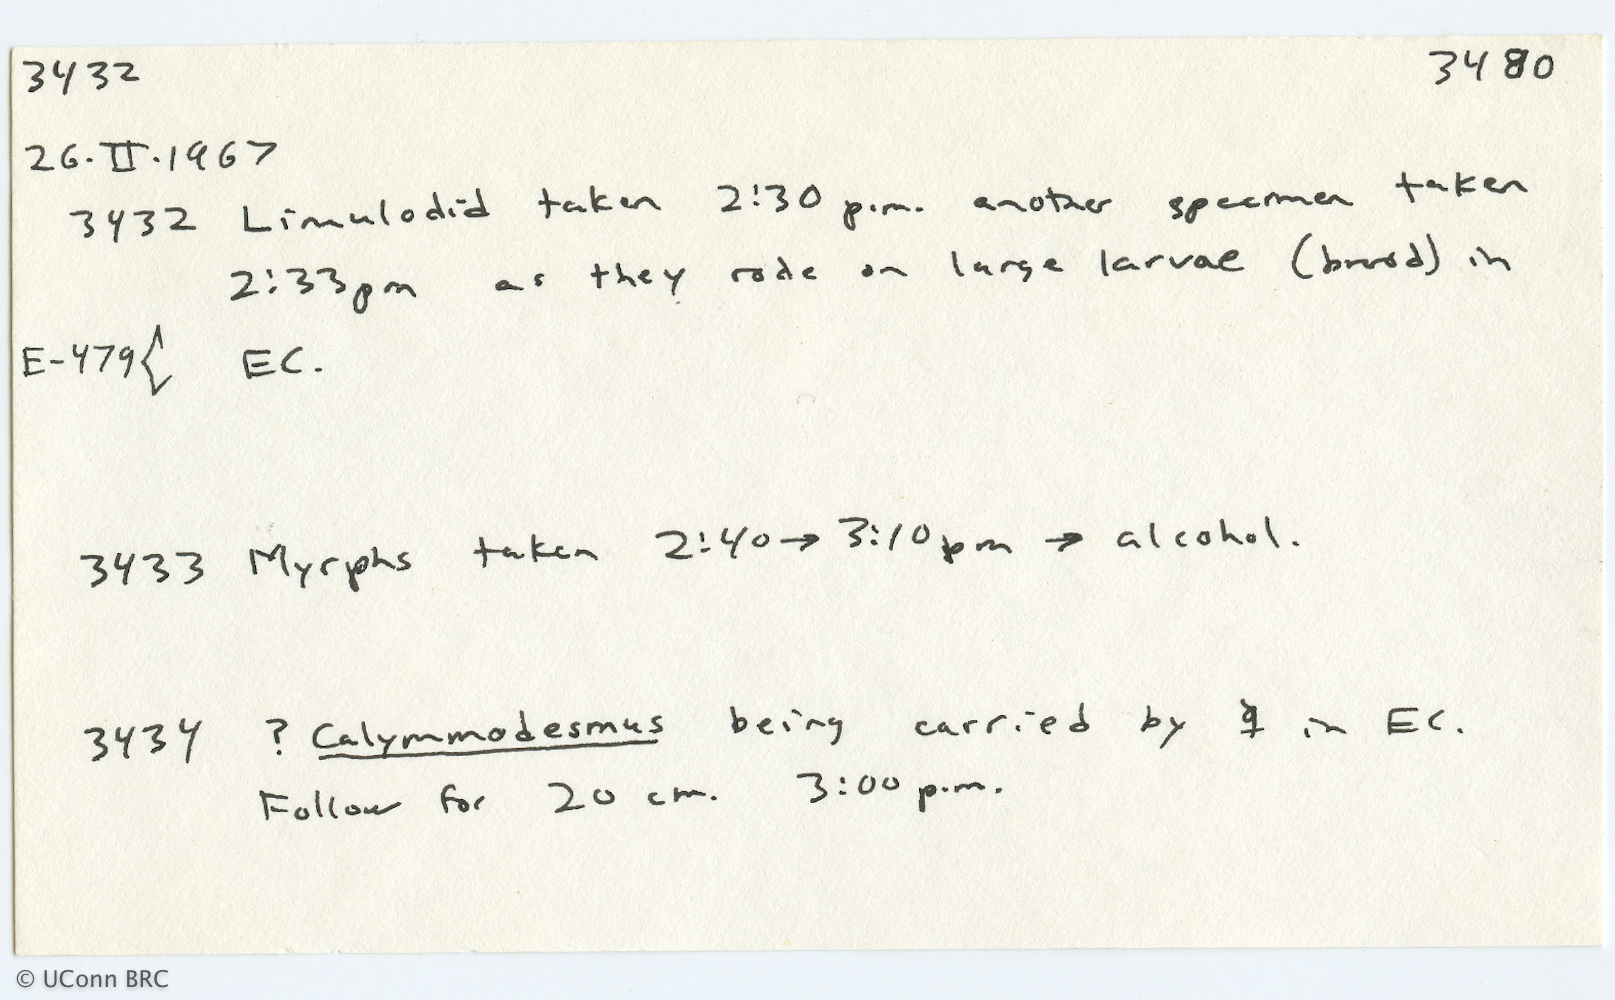 3432 3480
26.II.1967
3432 Limulodid taken 2:30 p.m. another specimen taken
2:33pm as they rode on large larvae (brood) in
E-479{ EC.
3433 Myrphs taken 2:40→3:10pm → alcohol.
3434 ? Calymmodesmus being carried by in EC.
Follow for 20 cm. 3:00 p.m.
© UConn BRC